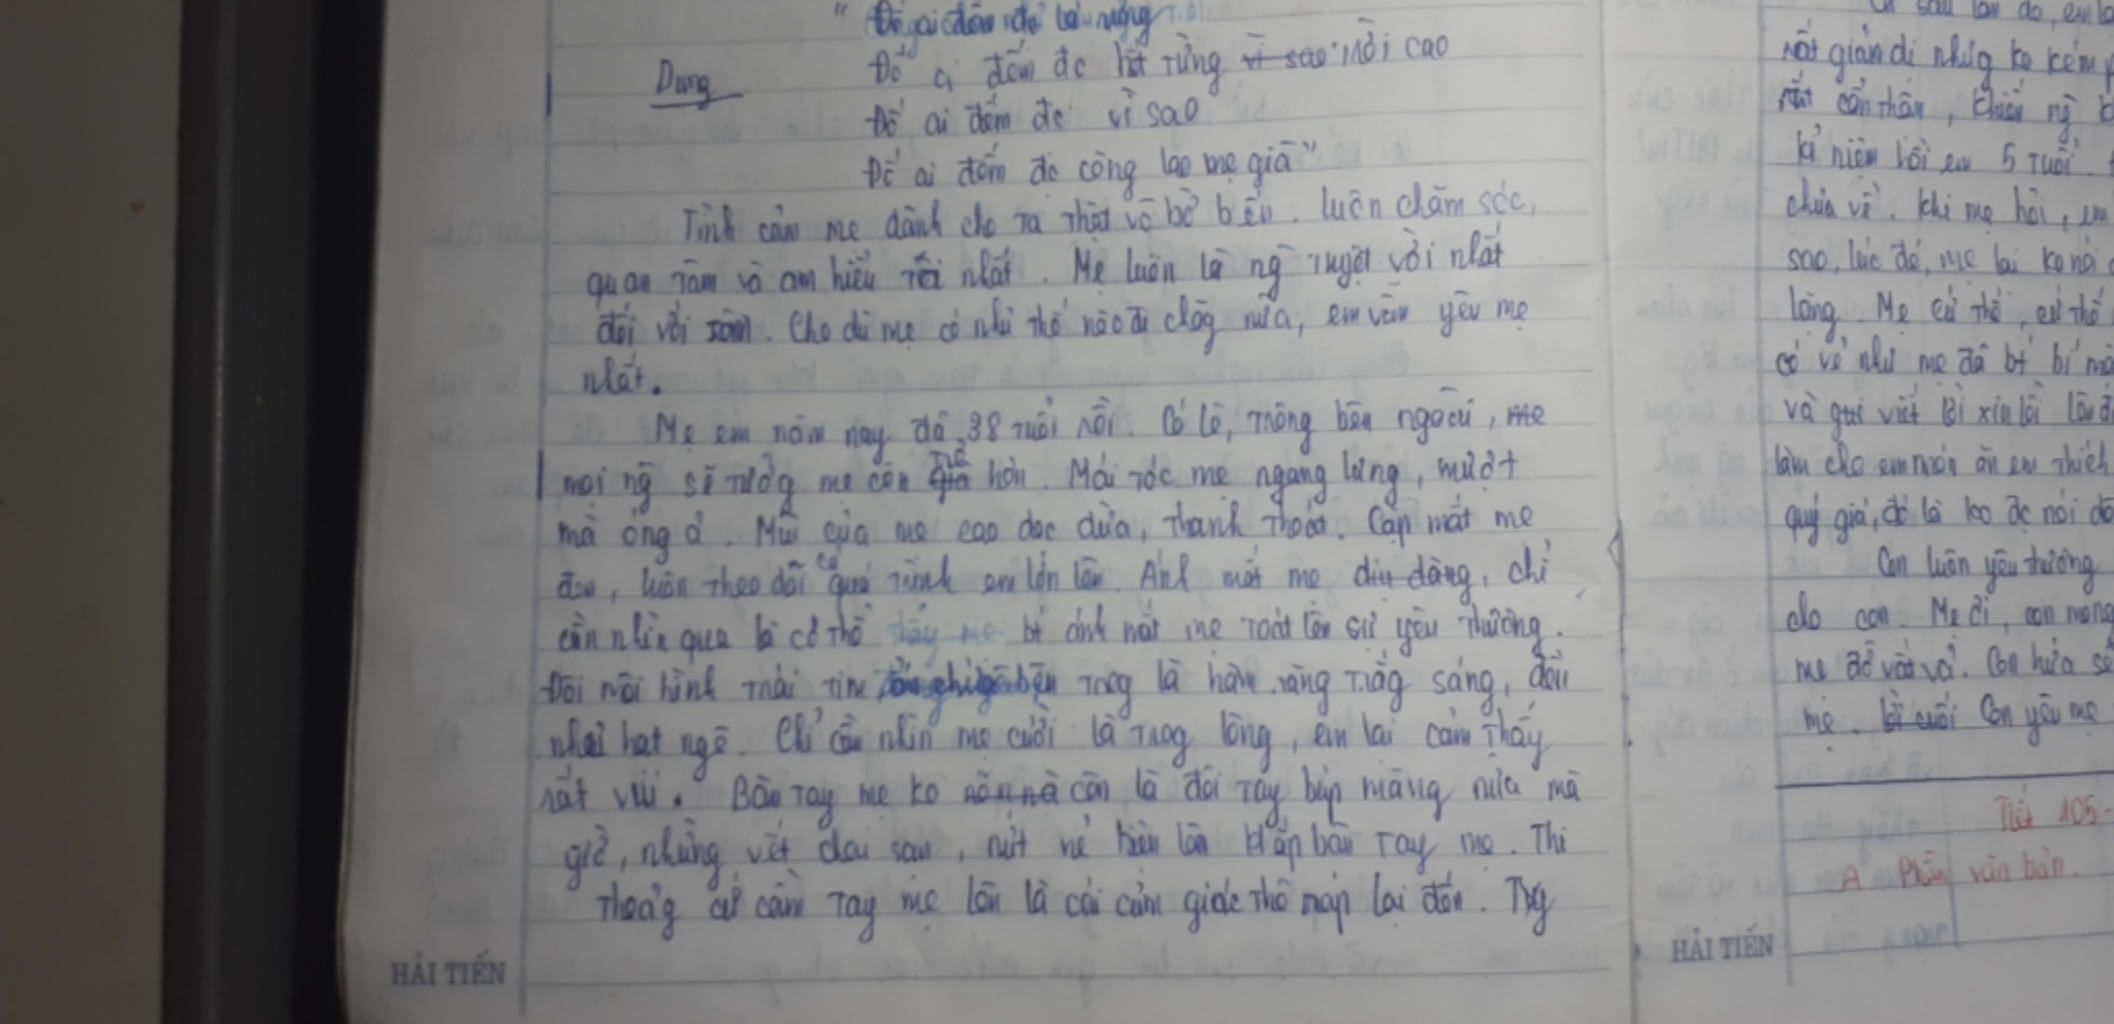 "Đố ai đếm được lá rừng
Dung
Đố ai đếm đc hết rừng vì sao trời cao
Đố ai đếm đc vì sao
Đố ai đếm đc công lao mẹ già"
Tình cảm mẹ dành cho ta thật vô bờ bến. luôn chăm sóc,
quan tâm và am hiểu tôi nhất. Mẹ luôn là ng tuyệt vời nhất
đối với. Cho dù mẹ có như thế nào đi chăg nữa, em vẫn yêu mẹ
nhất.
Mẹ em năm nay đã 38 tuổi rồi. Có lẽ, trông bên ngoài, mẹ
mọi ng sẽ tưởg mẹ còn già trẻ hơn. Mái tóc mẹ ngang lưng, mượt
mà óng ả. Mũi của mẹ cao dọc dừa, thanh thoát. Cặp mắt mẹ
đen, luôn theo dõi cả quá trình em lớn lên. Ánh mắt mẹ dịu dàng, chỉ
cần nhìn qua là có thể thấy mẹ bt ánh mắt mẹ toát lên sự yêu thương.
Đôi môi hình trái tim bên trog là hàm răng trắg sáng, đều
như hạt ngô. Chỉ cần nhìn mẹ cười là trog lòng, em lại cảm thấy
rất vui. Bàn tay mẹ ko còn là đôi tay búp măng nữa mà
giờ, những vết chai sạn, nứt nẻ hiện lên khắp bàn tay mẹ. Thi
thoảg cứ cầm tay mẹ lên là cái cảm giác thô ráp lại đến. Trg
HẢI TIẾN
rất giản dị nhưg ko kém
rất cẩn thận, khiến ng
kỉ niệm hồi em 5 tuổi.
chưa về. Khi mẹ hỏi, em
sao, lúc đó, mẹ lại ko nói
lặng. Mẹ cứ thế, cứ thế
có vẻ như mẹ đã bt bí mậ
và gửi viết lời xin lỗi
làm cho em món ăn em thích
quý giá, đó là ko đc nói dố
Con luôn yêu thương
cho con. Mẹ ơi, con mong
mẹ đỡ vất vả. Con hứa sẽ
mẹ. lời cuối Con yêu mẹ
Tiết 105-
A Phần văn bản.
HẢI TIẾN